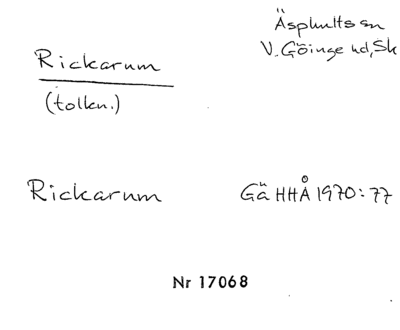 Äsphults sn
Rickarum
V. Göinge hd, Sk
(tolkn.)
Rickarum
Gä HHÅ 1970: 77
Nr 17068